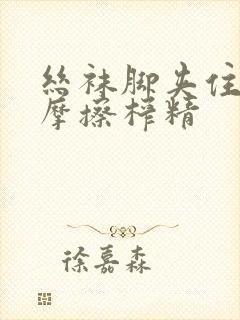 丝袜脚夹住
摩擦榨精
徐嘉森